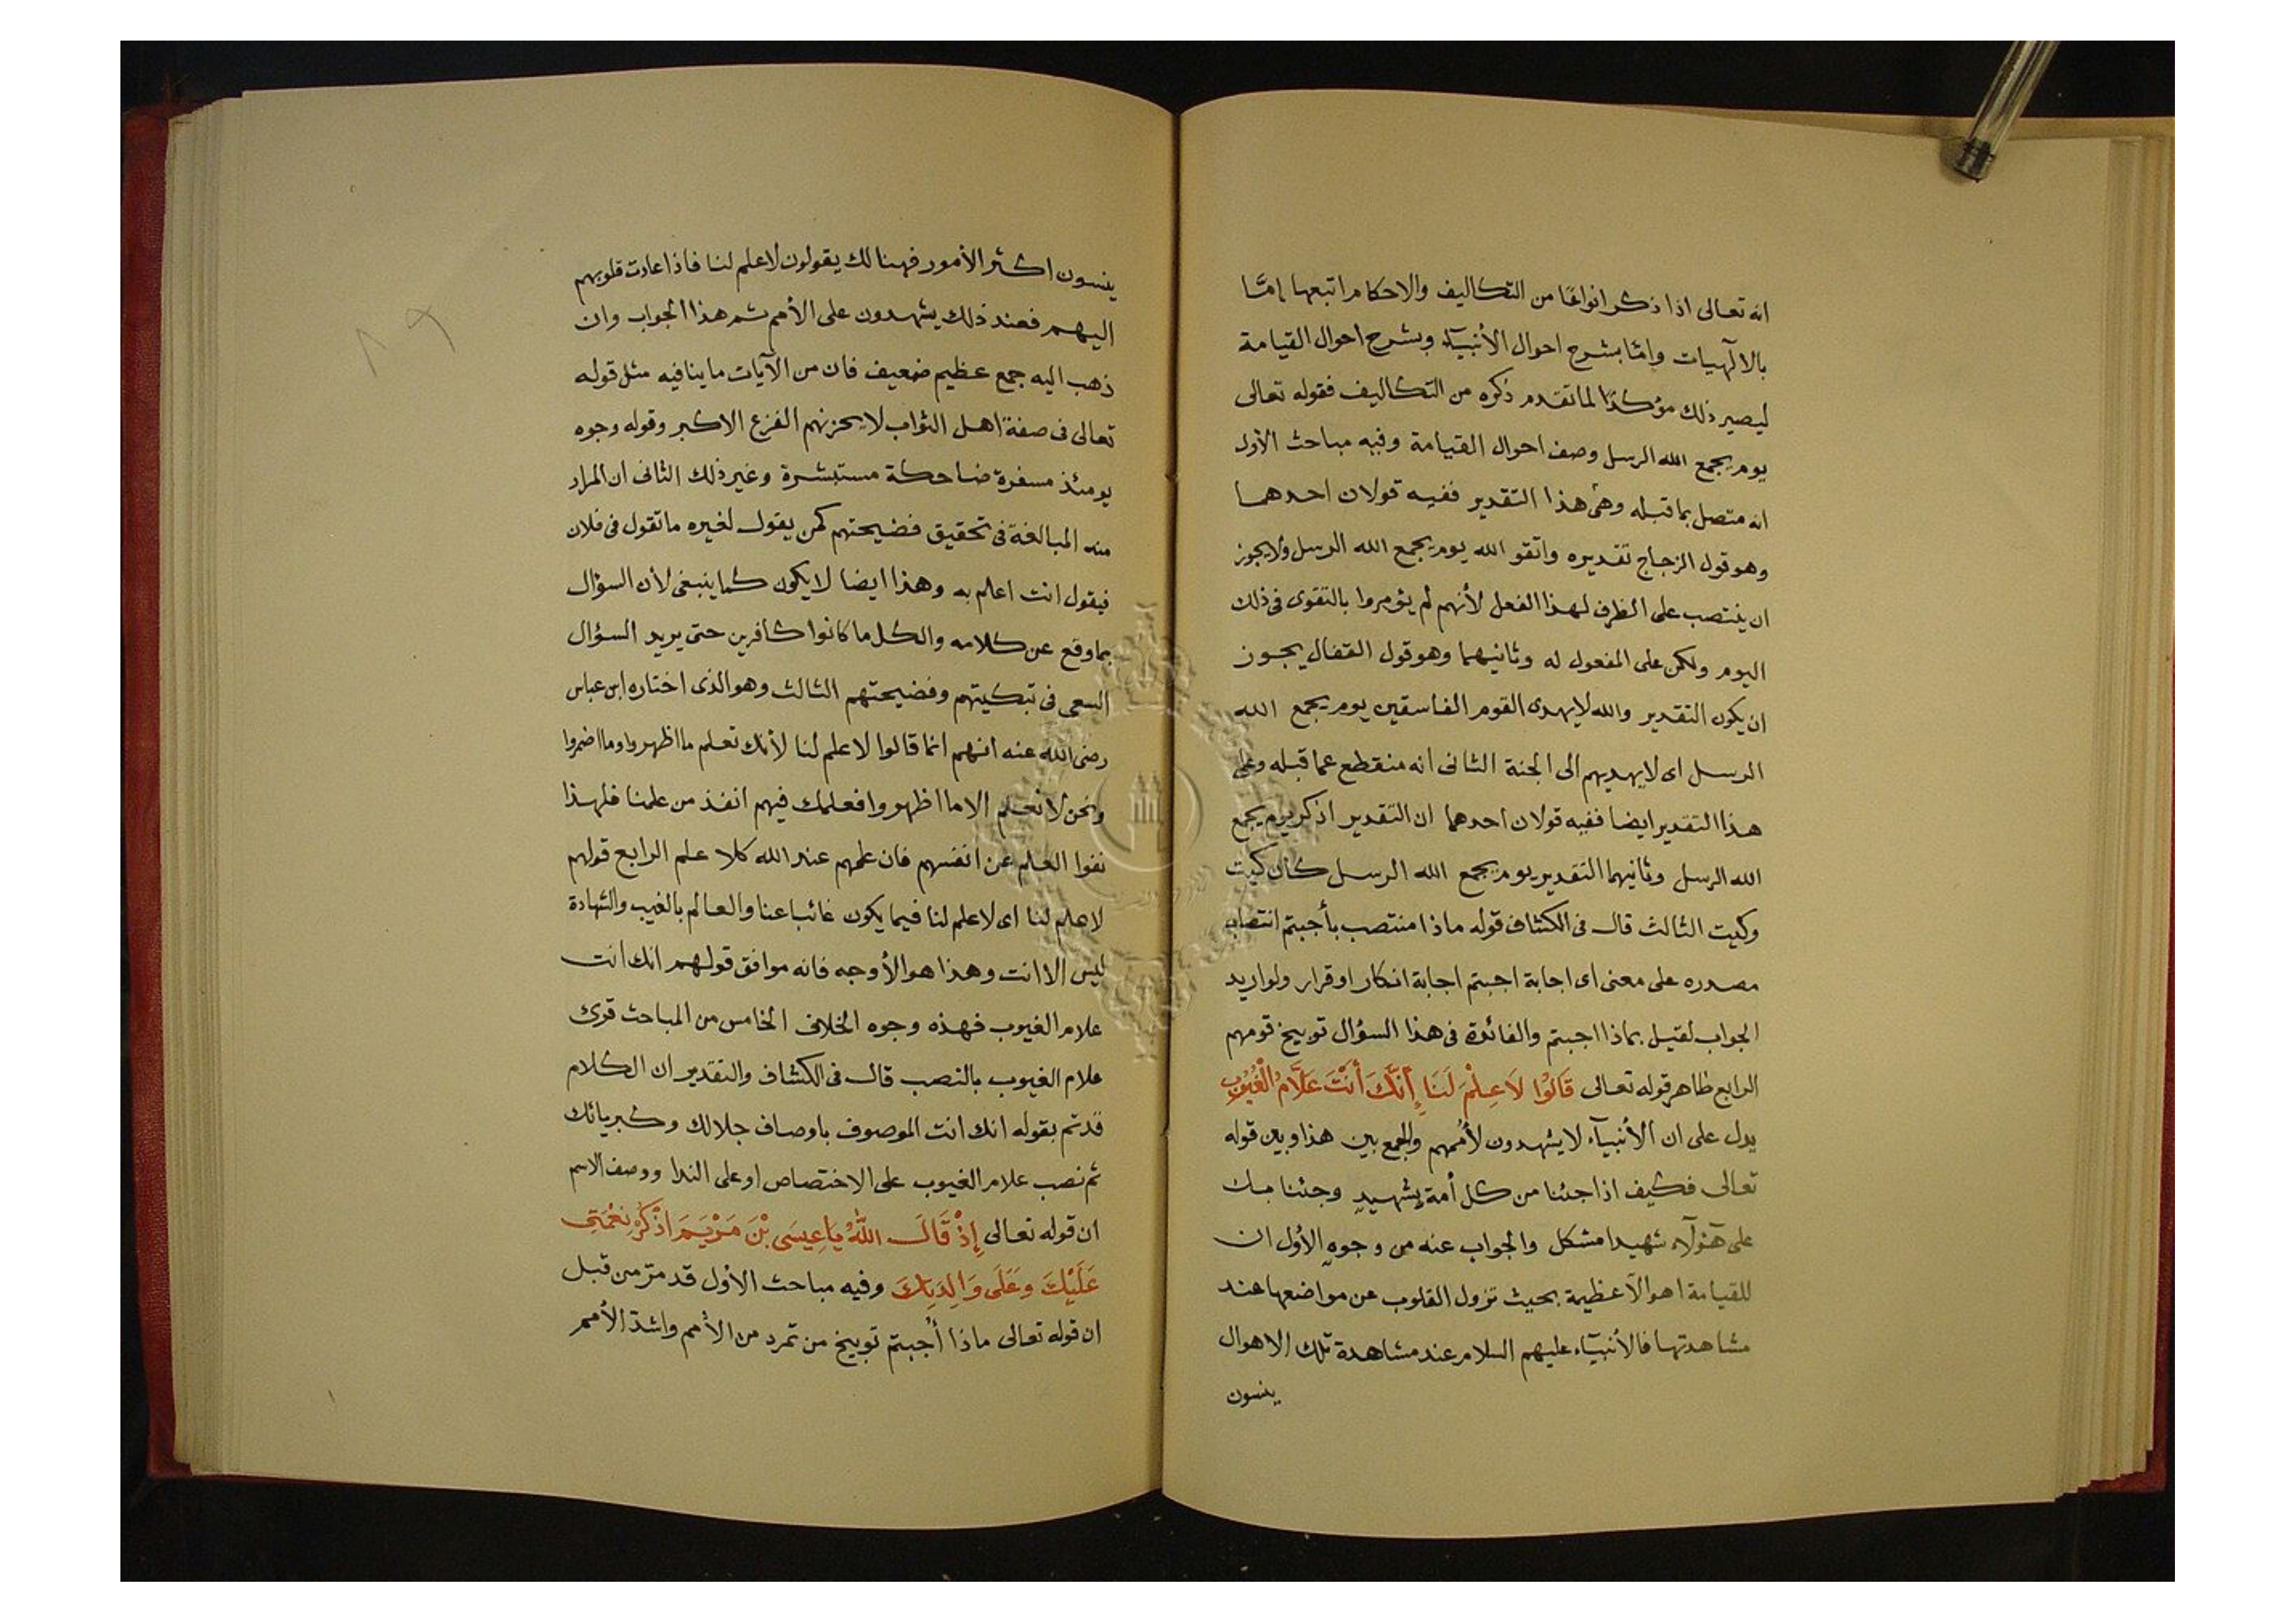 انه تعالى اذا ذكر انواعًا من التكاليف والاحكام اتبعها إمَّا
بالالٓهيات وامَّا بشرح احوال الأنبيآء وبشرح احوال القيامة
ليصير ذلك مؤكدًا لما تقدم ذكره من التكاليف فقوله تعالى
يوم يجمع الله الرسل وصف احوال القيامة وفيه مباحث الأول
انه متصل بما قبله وعلى هذا التقدير ففيه قولان احدهما
وهو قول الزجاج تقديره واتقو الله يوم يجمع الله الرسل ولا يجوز
ان ينتصب على الظرف لهذا الفعل لأنهم لم يؤمروا بالتقوى فى ذلك
اليوم ولكن على المفعول له وثانيهما وهو قول القفال يجوز
ان يكون التقدير والله لا يهدى القوم الفاسقين يوم يجمع الله
الرسل اى لا يهديهم الى الجنة الثانى انه منقطع عما قبله وعلى
هذا التقدير ايضا ففيه قولان احدهما ان التقدير اذكر يوم يجمع
الله الرسل وثانيهما التقدير يوم يجمع الله الرسل كان كيت
وكيت الثالث قال فى الكشاف قوله ماذا منتصب بأجبتم انتصاب
مصدره على معنى اى اجابة اجبتم اجابة انكار او قرار ولو اريد
الجواب لقيل بماذا اجبتم والفائدة فى هذا السؤال توبيخ قومهم
الرابع ظاهر قوله تعالى قَالُوْا لَا عِلْمَ لَنَا إِنَّكَ أَنْتَ عَلَّامُ الْغُيُوْبِ
يدل على ان الأنبيآء لا يشهدون لأممهم والجمع بين هذا وبين قوله
تعالى فكيف اذا جئنا من كل أمة بشهيدٍ وجئنا بك
على هٓؤلآء شهيدا مشكل والجواب عنه من وجوهٍ الأول ان
للقيامة اهوالا عظيمة بحيث تزول القلوب عن مواضعها عند
مشاهدتها فالأنبيآء عليهم السلام عند مشاهدة تلك الاهوال
ينسون
ينسون اكثر الأمور فهنالك يقولون لا علم لنا فاذا عادت قلوبهم
اليهم فعند ذلك يشهدون على الأمم ثم هذا الجواب وان
ذهب اليه جمع عظيم ضعيف فان من الآيات ما ينافيه مثل قوله
تعالى فى صفة اهل الثواب لا يحزنهم الفزع الاكبر وقوله وجوه
يومئذ مسفرة ضاحكة مستبشرة وغير ذلك الثانى ان المراد
منه المبالغة فى تحقيق فضيحتهم كمن يقول لغيره ما تقول فى فلان
فيقول انت اعلم به وهذا ايضا لا يكون كما ينبغى لأن السؤال
بما وقع عن كلامه والكل ما كانوا كافرين حتى يريد السؤال
السعى فى تبكيتهم وفضيحتهم الثالث وهو الذى اختاره ابن عباس
رضى الله عنه انهم انما قالوا لا علم لنا لأنك تعلم ما اظهروا وما اضمروا
ونحن لا نعلم الا ما اظهروا فعلمك فيهم انفذ من علمنا فلهذا
نفوا العلم عن انفسهم فان علمهم عند الله كلا علم الرابع قولهم
لا علم لنا اى لا علم لنا فيما يكون غائبا عنا والعالم بالغيب والشهادة
ليس الا انت وهذا هو الأوجه فانه موافق قولهم انك انت
علام الغيوب فهذه وجوه الخلاف الخامس من المباحث قرئ
علام الغيوب بالنصب قال فى الكشاف والتقدير ان الكلام
قد تم بقوله انك انت الموصوف باوصاف جلالك وكبريائك
ثم نصب علام الغيوب على الاختصاص او على الندا ووصف الاسم
ان قوله تعالى إِذْ قَالَ اللّٰهُ يَا عِيسَى بْنَ مَرْيَمَ اذْكُرْ نِعْمَتِى
عَلَيْكَ وَعَلَى وَالِدَتِكَ وفيه مباحث الأول قد مرّ من قبل
ان قوله تعالى ماذا أُجبتم توبيخ من تمرد من الأمم واشدّ الأمم
١٩